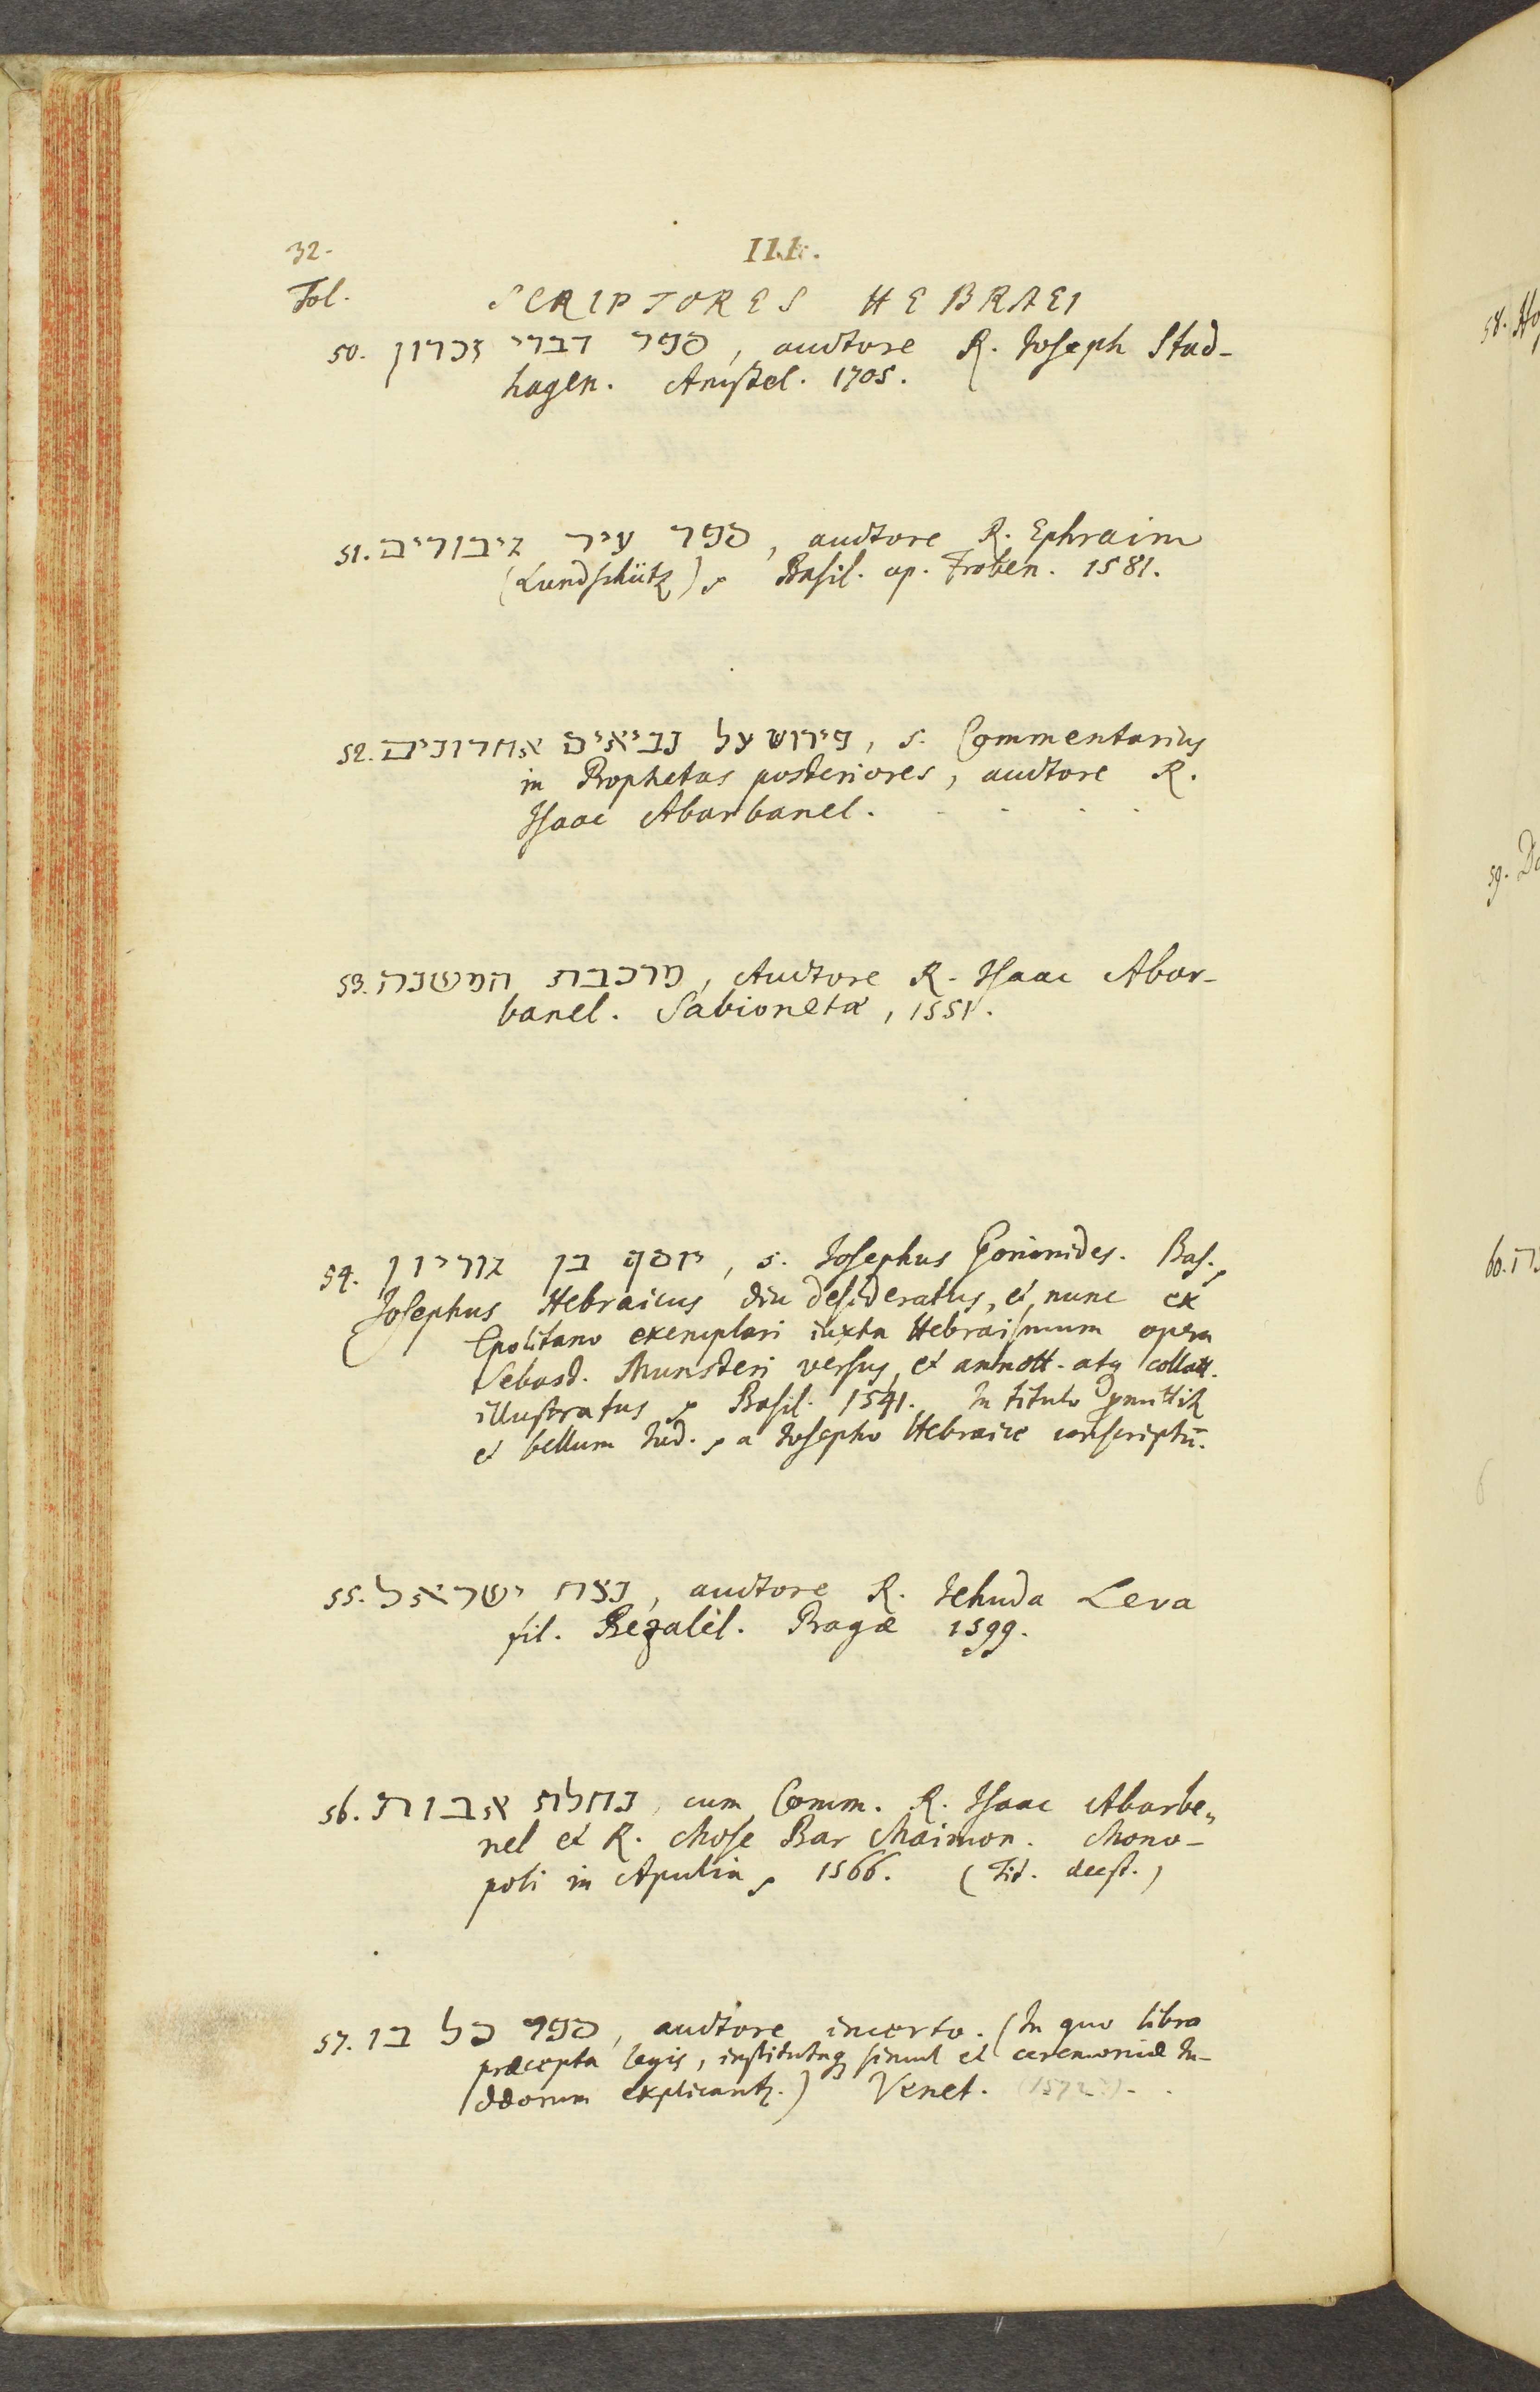 32.
III.
Fol.
SCRIPTORES HEBRAEI
50. ספר דברי זכרון, auctore R. Joseph Stad-
hagen. Amstel. 1705.
51. ספר עיר גיבורים, auctore R. Ephraim
(Lundschütz), Basil. ap. Froben. 1581.
52. פירוש על נביאים אחרונים, s. Commentarius
in Prophetas posteriores, auctore R.
Isaac Abarbanel.
53. מרכבת המשנה, Auctore R. Isaac Abar-
banel. Sabionetæ, 1551.
54. יוסף בן גוריון, s. Josephus Gorionides. Bas.,
Josephus Hebraicus diu desideratus, et nunc ex
Cpolitano exemplari iuxta Hebraismum opera
Sebast. Munsteri versus, et annott. atq collatt.
illustratus, Basil. 1541. In titulo
et bellum Jud., a Josepho Hebraice conscriptū.
55. נצח ישראל, auctore R. Jehuda Leva
fil. Bezalel. Pragæ 1599.
56. נחלת אבות, cum Comm. R. Isaac Abarbe„
nel et R. Mose Bar Maimon. Mono-
poli in Apulia, 1566. (Tit. deest.)
57. ספר כל בו, auctore incerto. (In quo libro
præcepta legis, institutaq simul et ceremoniæ Ju-
dæorum explicantr.) Venet. (1572?)
58. Ho
59.
60.